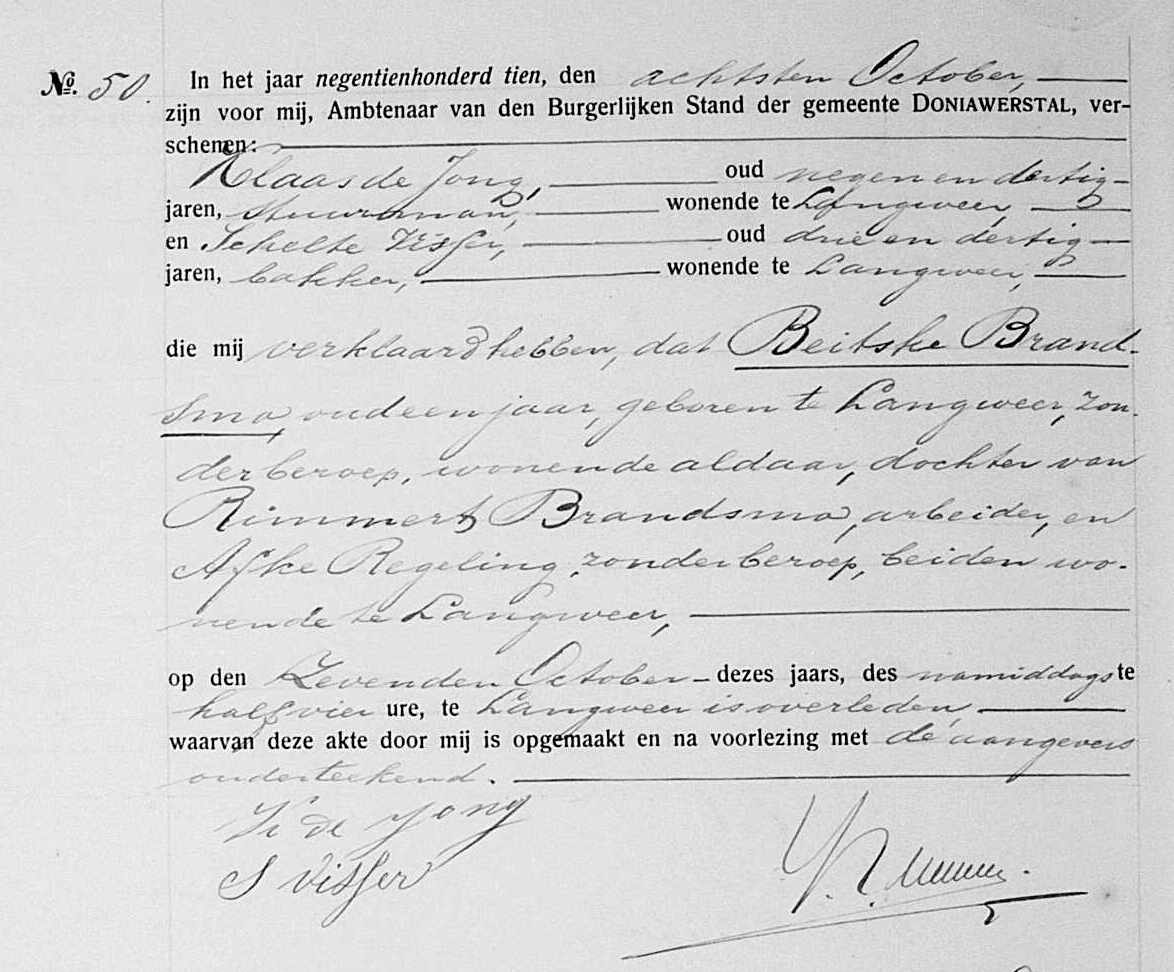 No. 50. In het jaar negentienhonderd tien, den achtsten October,
zijn voor mij, Ambtenaar van den Burgerlijken Stand der gemeente DONIAWERSTAL, ver-
schenen:
Klaas de Jong, oud negen en dertig
jaren, stuurman, wonende te Langweer,
en Scholte Visser, oud drie en dertig
jaren, bakker, wonende te Langweer,
die mij verklaard hebben, dat Beitske Brand-
sma, oud een jaar, geboren te Langweer, zon-
der beroep, wonende aldaar, dochter van
Rimmert Brandsma, arbeider, en
Afke Regeling, zonder beroep, beiden wo-
nende te Langweer,
op den Zevenden October dezes jaars, des namiddags te
half vier ure, te Langweer is overleden,
waarvan deze akte door mij is opgemaakt en na voorlezing met de aangevers
onderteekend.
K de Jong
S Visser